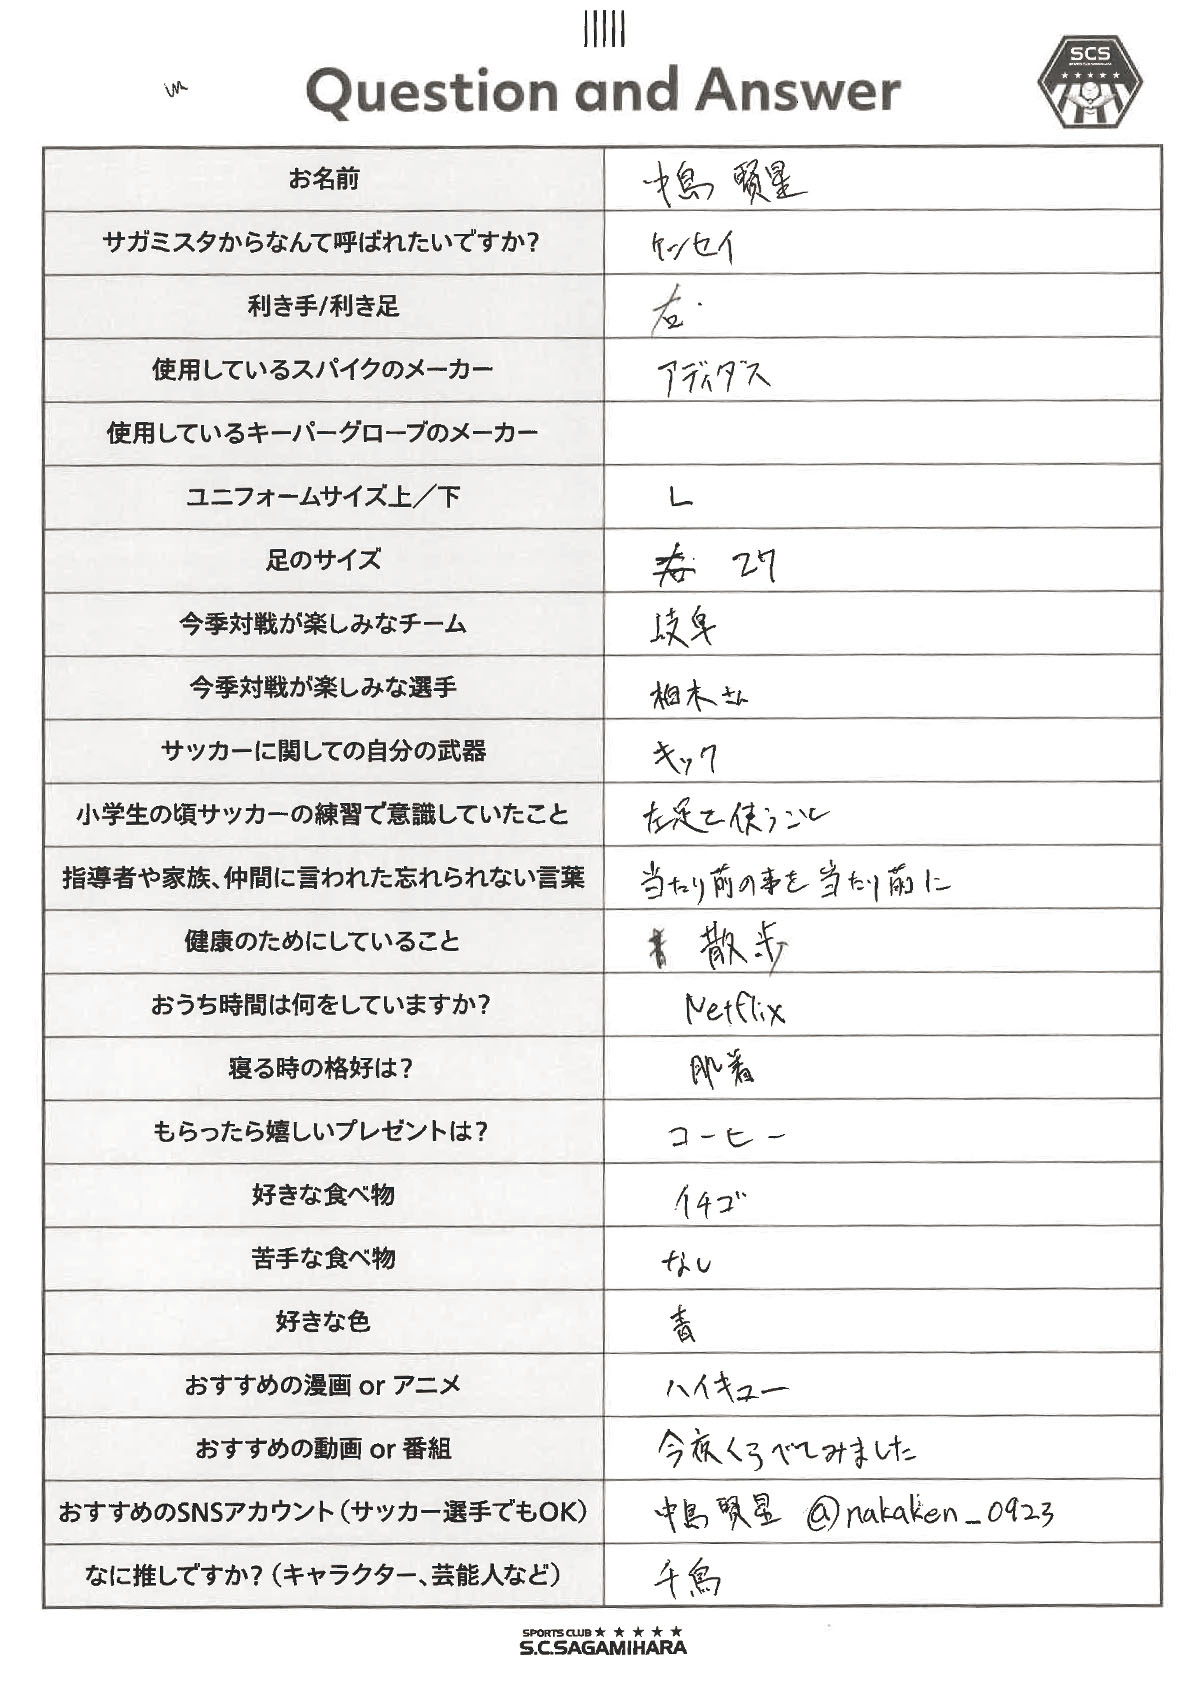 Question and Answer
SCS
お名前 中島 賢星
サガミスタからなんて呼ばれたいですか? ケンセイ
利き手/利き足 右
使用しているスパイクのメーカー アディダス
使用しているキーパーグローブのメーカー
ユニフォームサイズ上／下 L
足のサイズ 27
今季対戦が楽しみなチーム 岐阜
今季対戦が楽しみな選手 柏木さん
サッカーに関しての自分の武器 キック
小学生の頃サッカーの練習で意識していたこと 左足を使うこと
指導者や家族、仲間に言われた忘れられない言葉 当たり前の事を当たり前に
健康のためにしていること 散歩
おうち時間は何をしていますか? Netflix
寝る時の格好は? 肌着
もらったら嬉しいプレゼントは? コーヒー
好きな食べ物 イチゴ
苦手な食べ物 なし
好きな色 青
おすすめの漫画 or アニメ ハイキュー
おすすめの動画 or 番組 今夜くらべてみました
おすすめのSNSアカウント（サッカー選手でもOK） 中島 賢星 @nakaken_0923
なに推しですか?（キャラクター、芸能人など） 千鳥
SPORTS CLUB
S.C.SAGAMIHARA